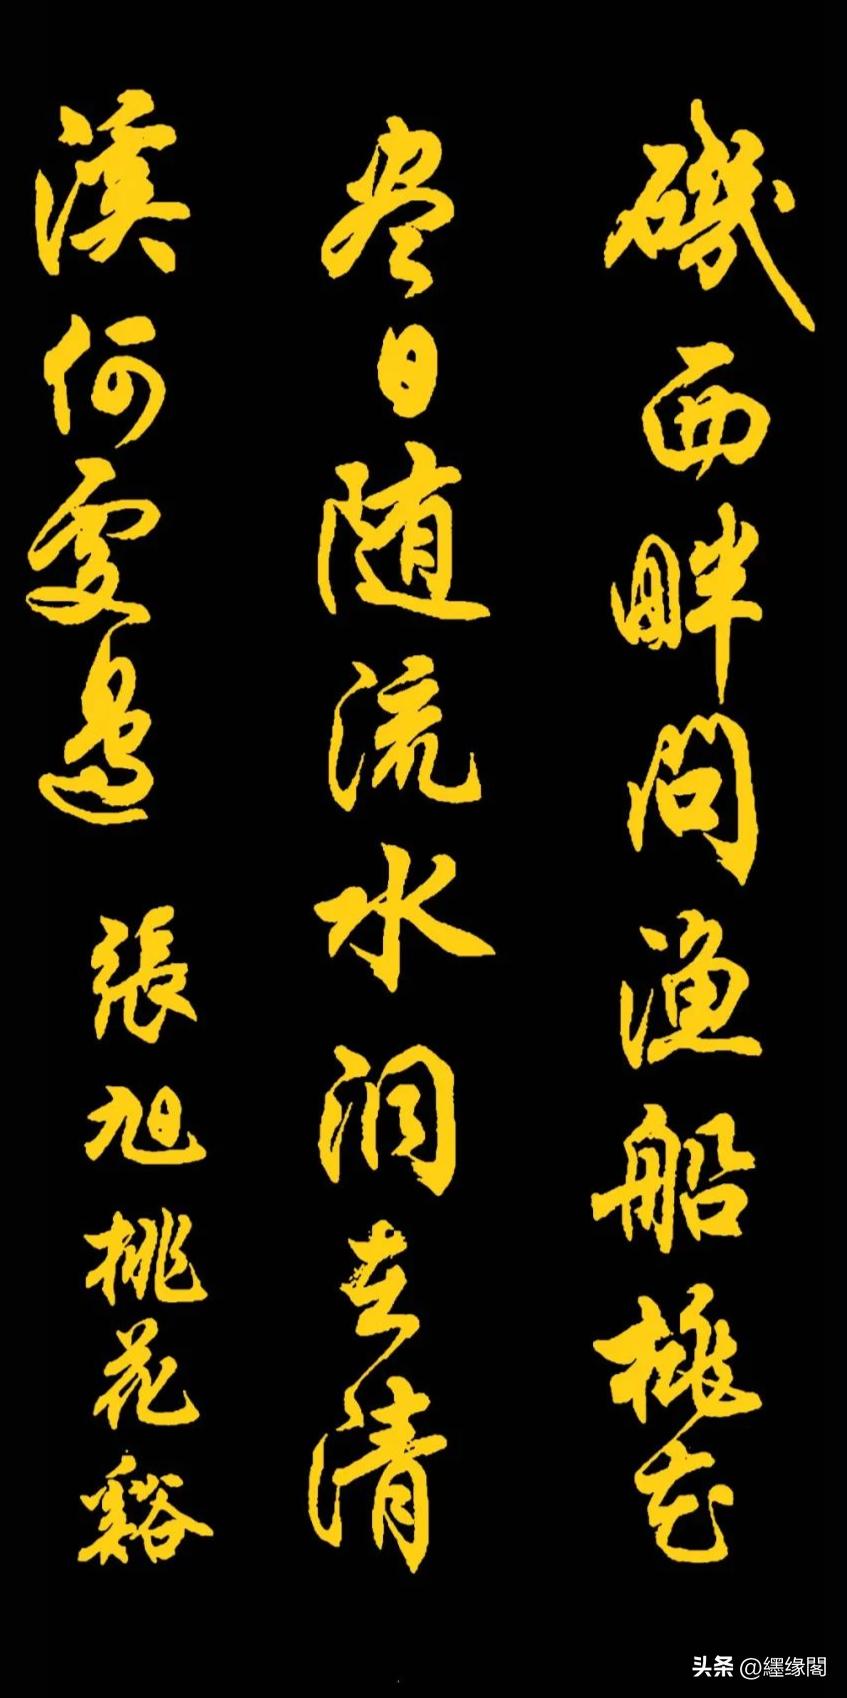 磯西畔問渔船桃花
尽日随流水洞在清
溪何處邊 張旭桃花谿
头条 @纆缘閣